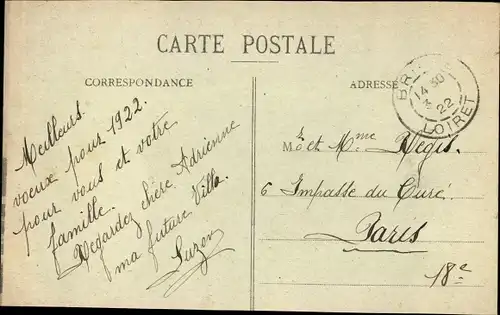 CARTE POSTALE
CORRESPONDANCE
ADRESSE
14 30
22
LOIRET
Meilleurs
voeux pour 1922.
pour vous et votre
famille.
Regardez chère Adrienne
ma future Villa.
Suzon
Mr et Mme Regis.
6 Impasse du Curé
Paris
18e